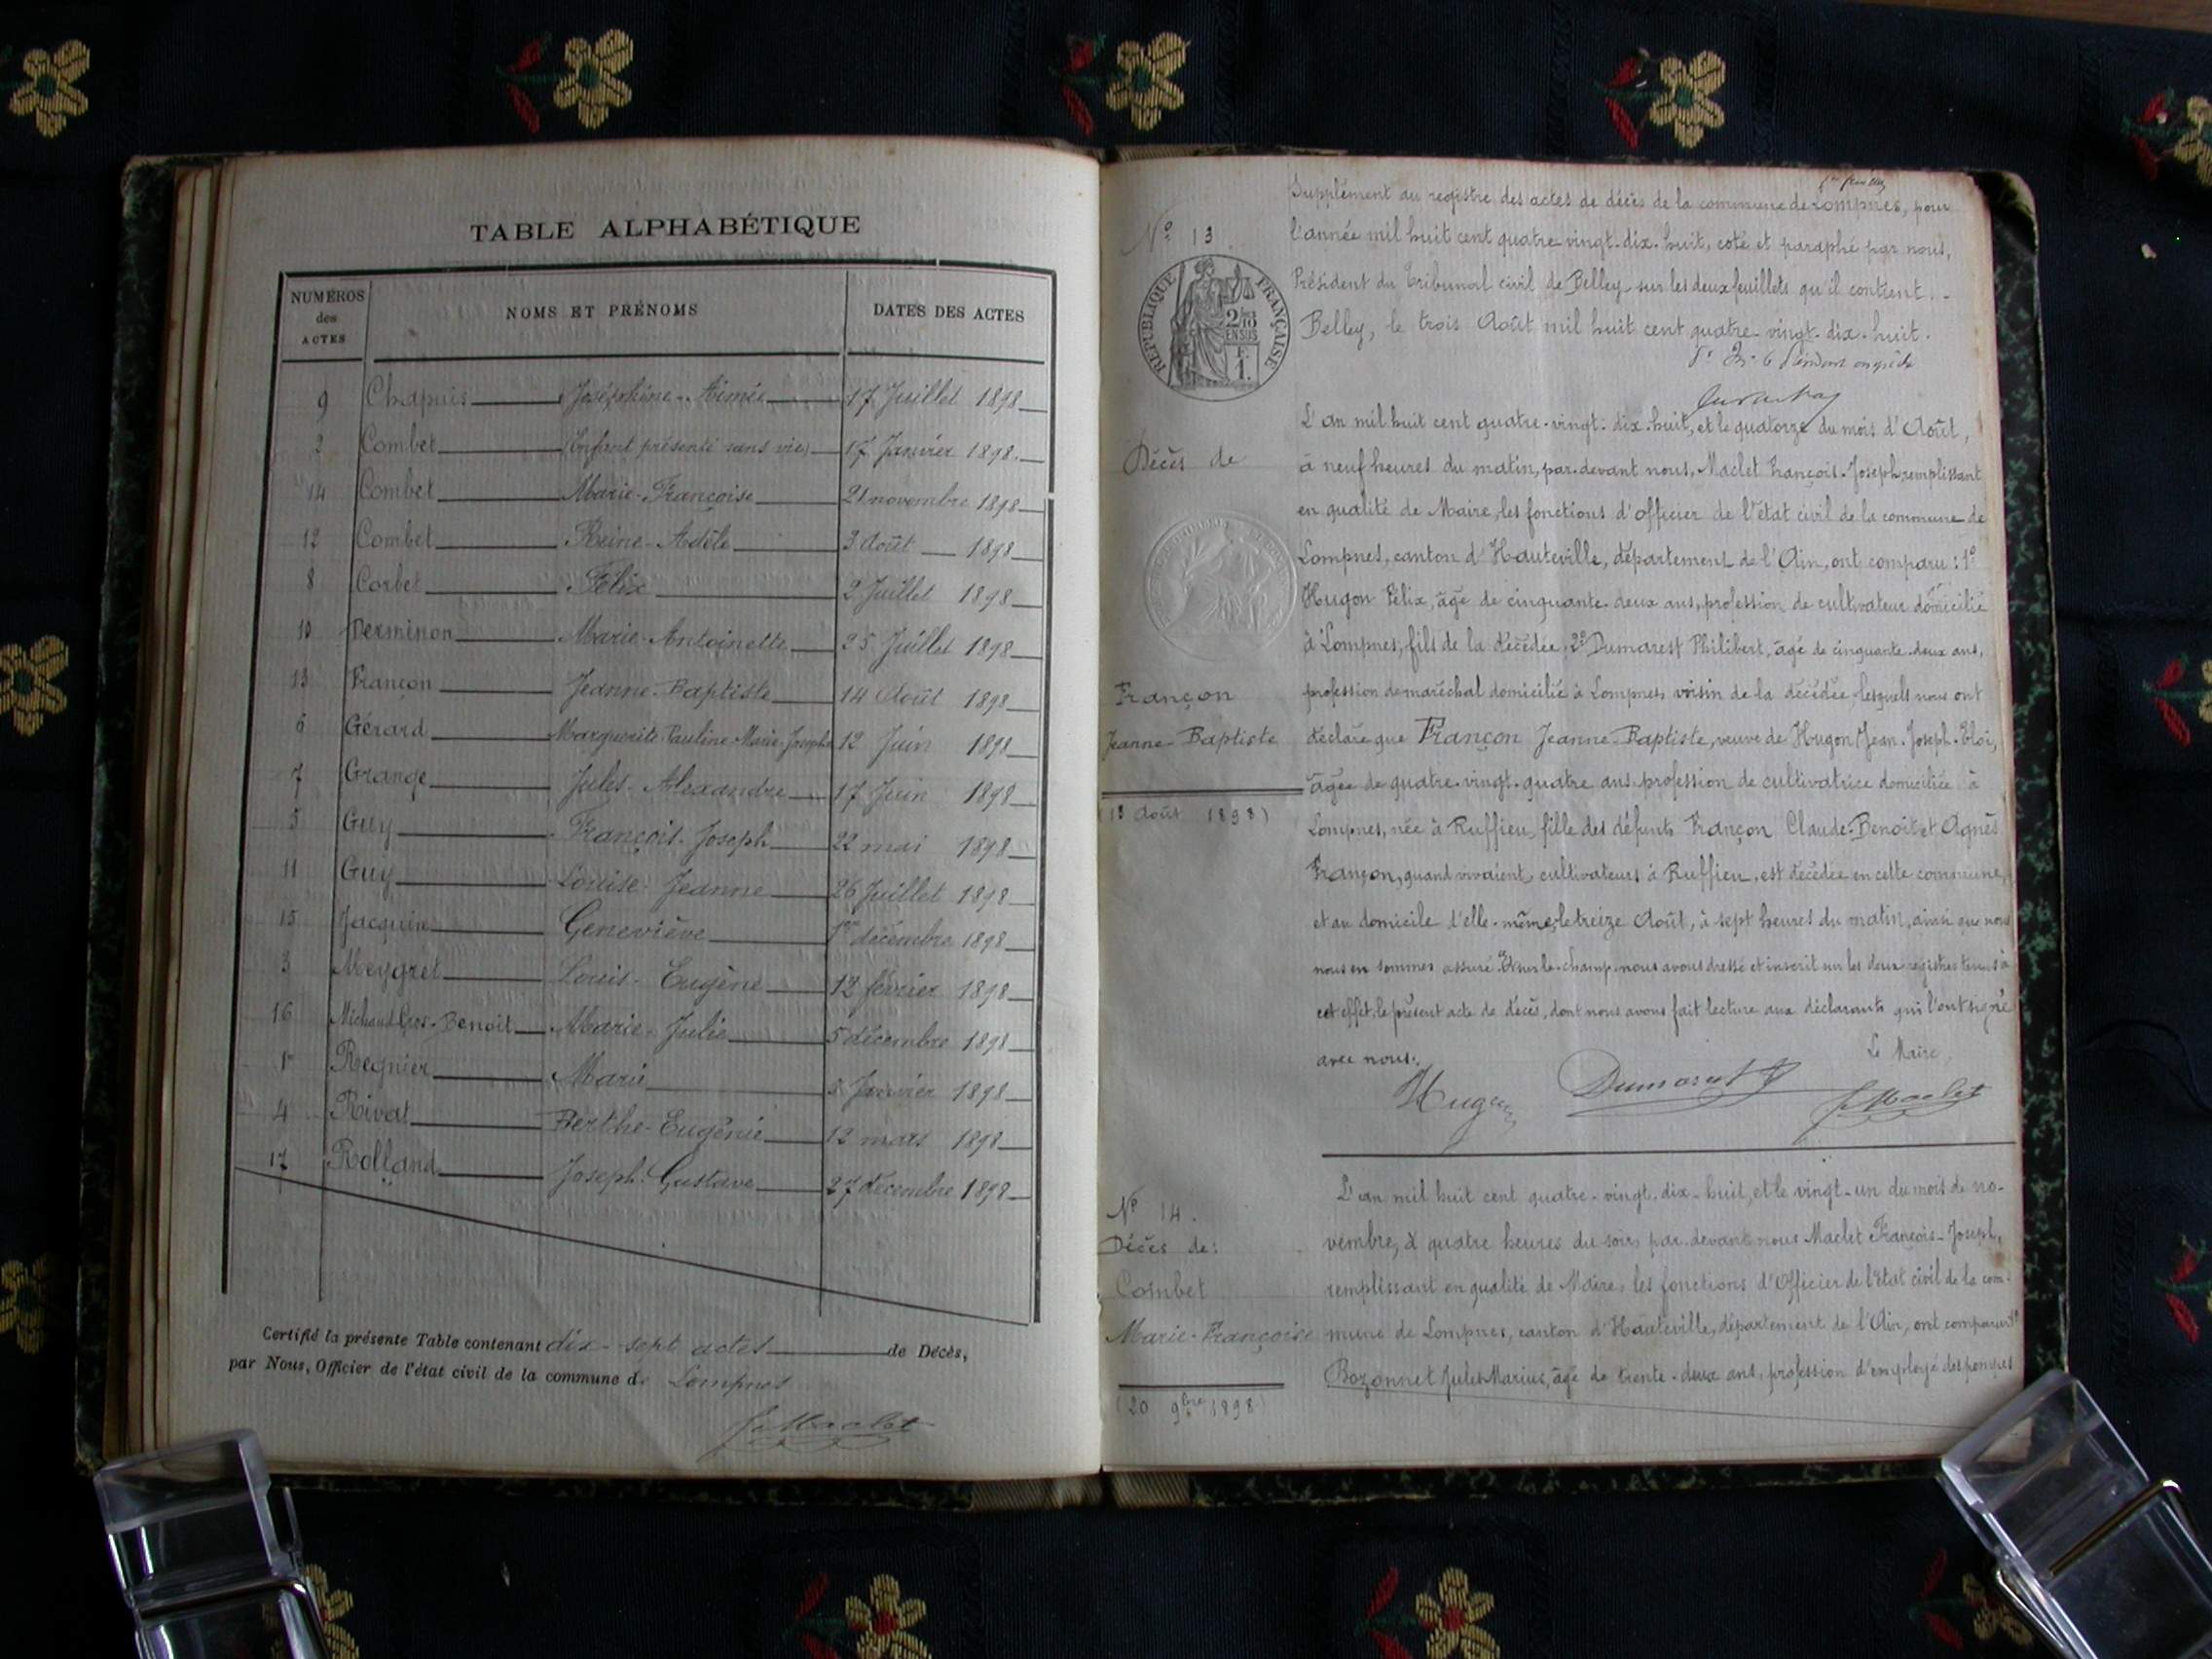 TABLE ALPHABÉTIQUE
NUMÉROS des ACTES NOMS ET PRÉNOMS DATES DES ACTES
9 Chapuis Joséphine-Aimée 17 Juillet 1898
2 Combet (Enfant présenté sans vie) 17 Janvier 1898
14 Combet Marie-Françoise 21 novembre 1898
12 Combet Reine-Adèle 3 Août 1898
8 Corbet Félix 2 Juillet 1898
10 Derminon Marie-Antoinette 25 Juillet 1898
13 Françon Jeanne-Baptiste 14 Août 1898
6 Gérard Marguerite Pauline-Marie-Josepha 12 Juin 1898
7 Grange Jules-Alexandre 17 Juin 1898
5 Guy François-Joseph 22 mai 1898
11 Guy Louise-Jeanne 26 Juillet 1898
15 Jacquin Geneviève 1er décembre 1898
3 Meygret Louis-Eugène 12 février 1898
16 Michaud-Gros-Benoit Marie-Julie 5 décembre 1898
1 Regnier Marie Janvier 1898
4 Rivat Berthe-Eugénie 12 mars 1898
17 Rolland Joseph-Gustave 27 décembre 1898
Certifié la présente Table contenant dix-sept actes de Décès,
par Nous, Officier de l'état civil de la commune de Lompnes
J. Maclet
Supplément au registre des actes de décès de la commune de Lompnes, pour
l'année mil huit cent quatre-vingt-dix-huit, coté et paraphé par nous,
Président du Tribunal civil de Belley sur les deux feuillets qu'il contient. -
Belley, le trois Août mil huit cent quatre-vingt-dix-huit.
No 13
RÉPUBLIQUE FRANÇAISE
2/10 EN SUS
F. 1.
Décès de
Françon
Jeanne-Baptiste
(13 Août 1898)
L'an mil huit cent quatre-vingt-dix-huit, et le quatorze du mois d'Août,
à neuf heures du matin, par-devant nous, Maclet François-Joseph, remplissant
en qualité de Maire, les fonctions d'officier de l'état civil de la commune de
Lompnes, canton d'Hauteville, département de l'Ain, ont comparu: 1o
Hugon Félix, âgé de cinquante-deux ans, profession de cultivateur domicilié
à Lompnes, fils de la décédée, 2o Dumarest Philibert, âgé de cinquante-deux ans,
profession de maréchal domicilié à Lompnes, voisin de la décédée, lesquels nous ont
déclaré que Françon Jeanne-Baptiste, veuve de Hugon Jean-Joseph-Eloi,
âgée de quatre-vingt-quatre ans, profession de cultivatrice domiciliée à
Lompnes, née à Ruffieu, fille des défunts Françon Claude-Benoit et Agnès
Françon, quand vivaient, cultivateurs à Ruffieu, est décédée en cette commune,
et au domicile d'elle-même, le treize Août, à sept heures du matin, ainsi que nous
nous en sommes assuré. Et sur-le-champ nous avons dressé et inscrit sur les deux registres tenus à
cet effet, le présent acte de décès, dont nous avons fait lecture aux déclarants qui l'ont signé
avec nous. Le Maire,
Hugon Dumarest J. Maclet
No 14.
Décès de:
Combet
Marie-Françoise
(20 9bre 1898)
L'an mil huit cent quatre-vingt-dix-huit, et le vingt-un du mois de no-
vembre, à quatre heures du soir, par-devant nous Maclet François-Joseph,
remplissant en qualité de Maire, les fonctions d'Officier de l'état civil de la com-
mune de Lompnes, canton d'Hauteville, département de l'Ain, ont comparu 1o
Bozonnet Jules Marius, âgé de trente-deux ans, profession d'employé des pompes